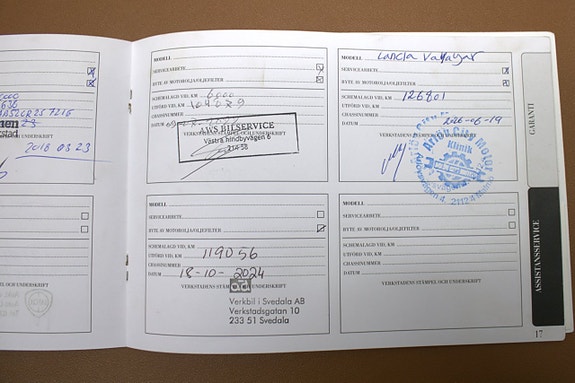 2018 03 23
VERKSTADENS STÄMPEL OCH UNDERSKRIFT
MODELL
SERVICEARBETE
BYTE AV MOTOROLJA/OLJEFILTER
SCHEMALAGD VID, KM 6000
UTFÖRD VID, KM
CHASSINUMMER
DATUM
VERKSTADENS STÄMPEL OCH UNDERSKRIFT
AWS BILSERVICE
Västra Hindbyvägen 6
214 58
MODELL Lancia Voyager
SERVICEARBETE
BYTE AV MOTOROLJA/OLJEFILTER
SCHEMALAGD VID, KM
UTFÖRD VID, KM 126801
CHASSINUMMER
DATUM
VERKSTADENS STÄMPEL OCH UNDERSKRIFT
City Motor
Klinik
MODELL
SERVICEARBETE
BYTE AV MOTOROLJA/OLJEFILTER
SCHEMALAGD VID, KM
UTFÖRD VID, KM 119056
CHASSINUMMER
DATUM 18-10-2024
VERKSTADENS STÄMPEL OCH UNDERSKRIFT
ad
Verkbil i Svedala AB
Verkstadsgatan 10
233 51 Svedala
MODELL
SERVICEARBETE
BYTE AV MOTOROLJA/OLJEFILTER
SCHEMALAGD VID, KM
UTFÖRD VID, KM
CHASSINUMMER
DATUM
VERKSTADENS STÄMPEL OCH UNDERSKRIFT
GARANTI
ASSISTANSSERVICE
17